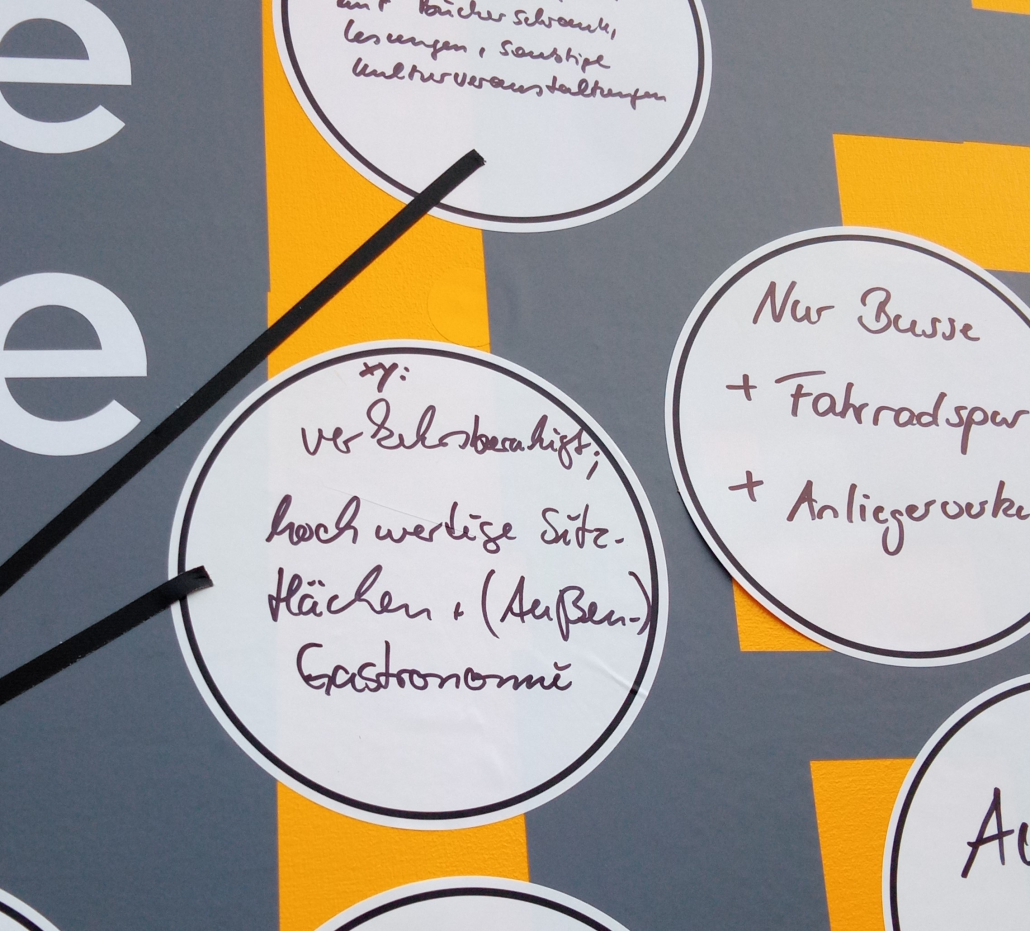 e
e
mit Bücherschrank,
Lesungen, sonstige
Kulturveranstaltungen
xy:
verkehrsberuhigt;
hochwertige Sitz-
flächen, (Außen-)
Gastronomie
Nur Busse
+ Fahrradspur
+ Anliegerverke
Au